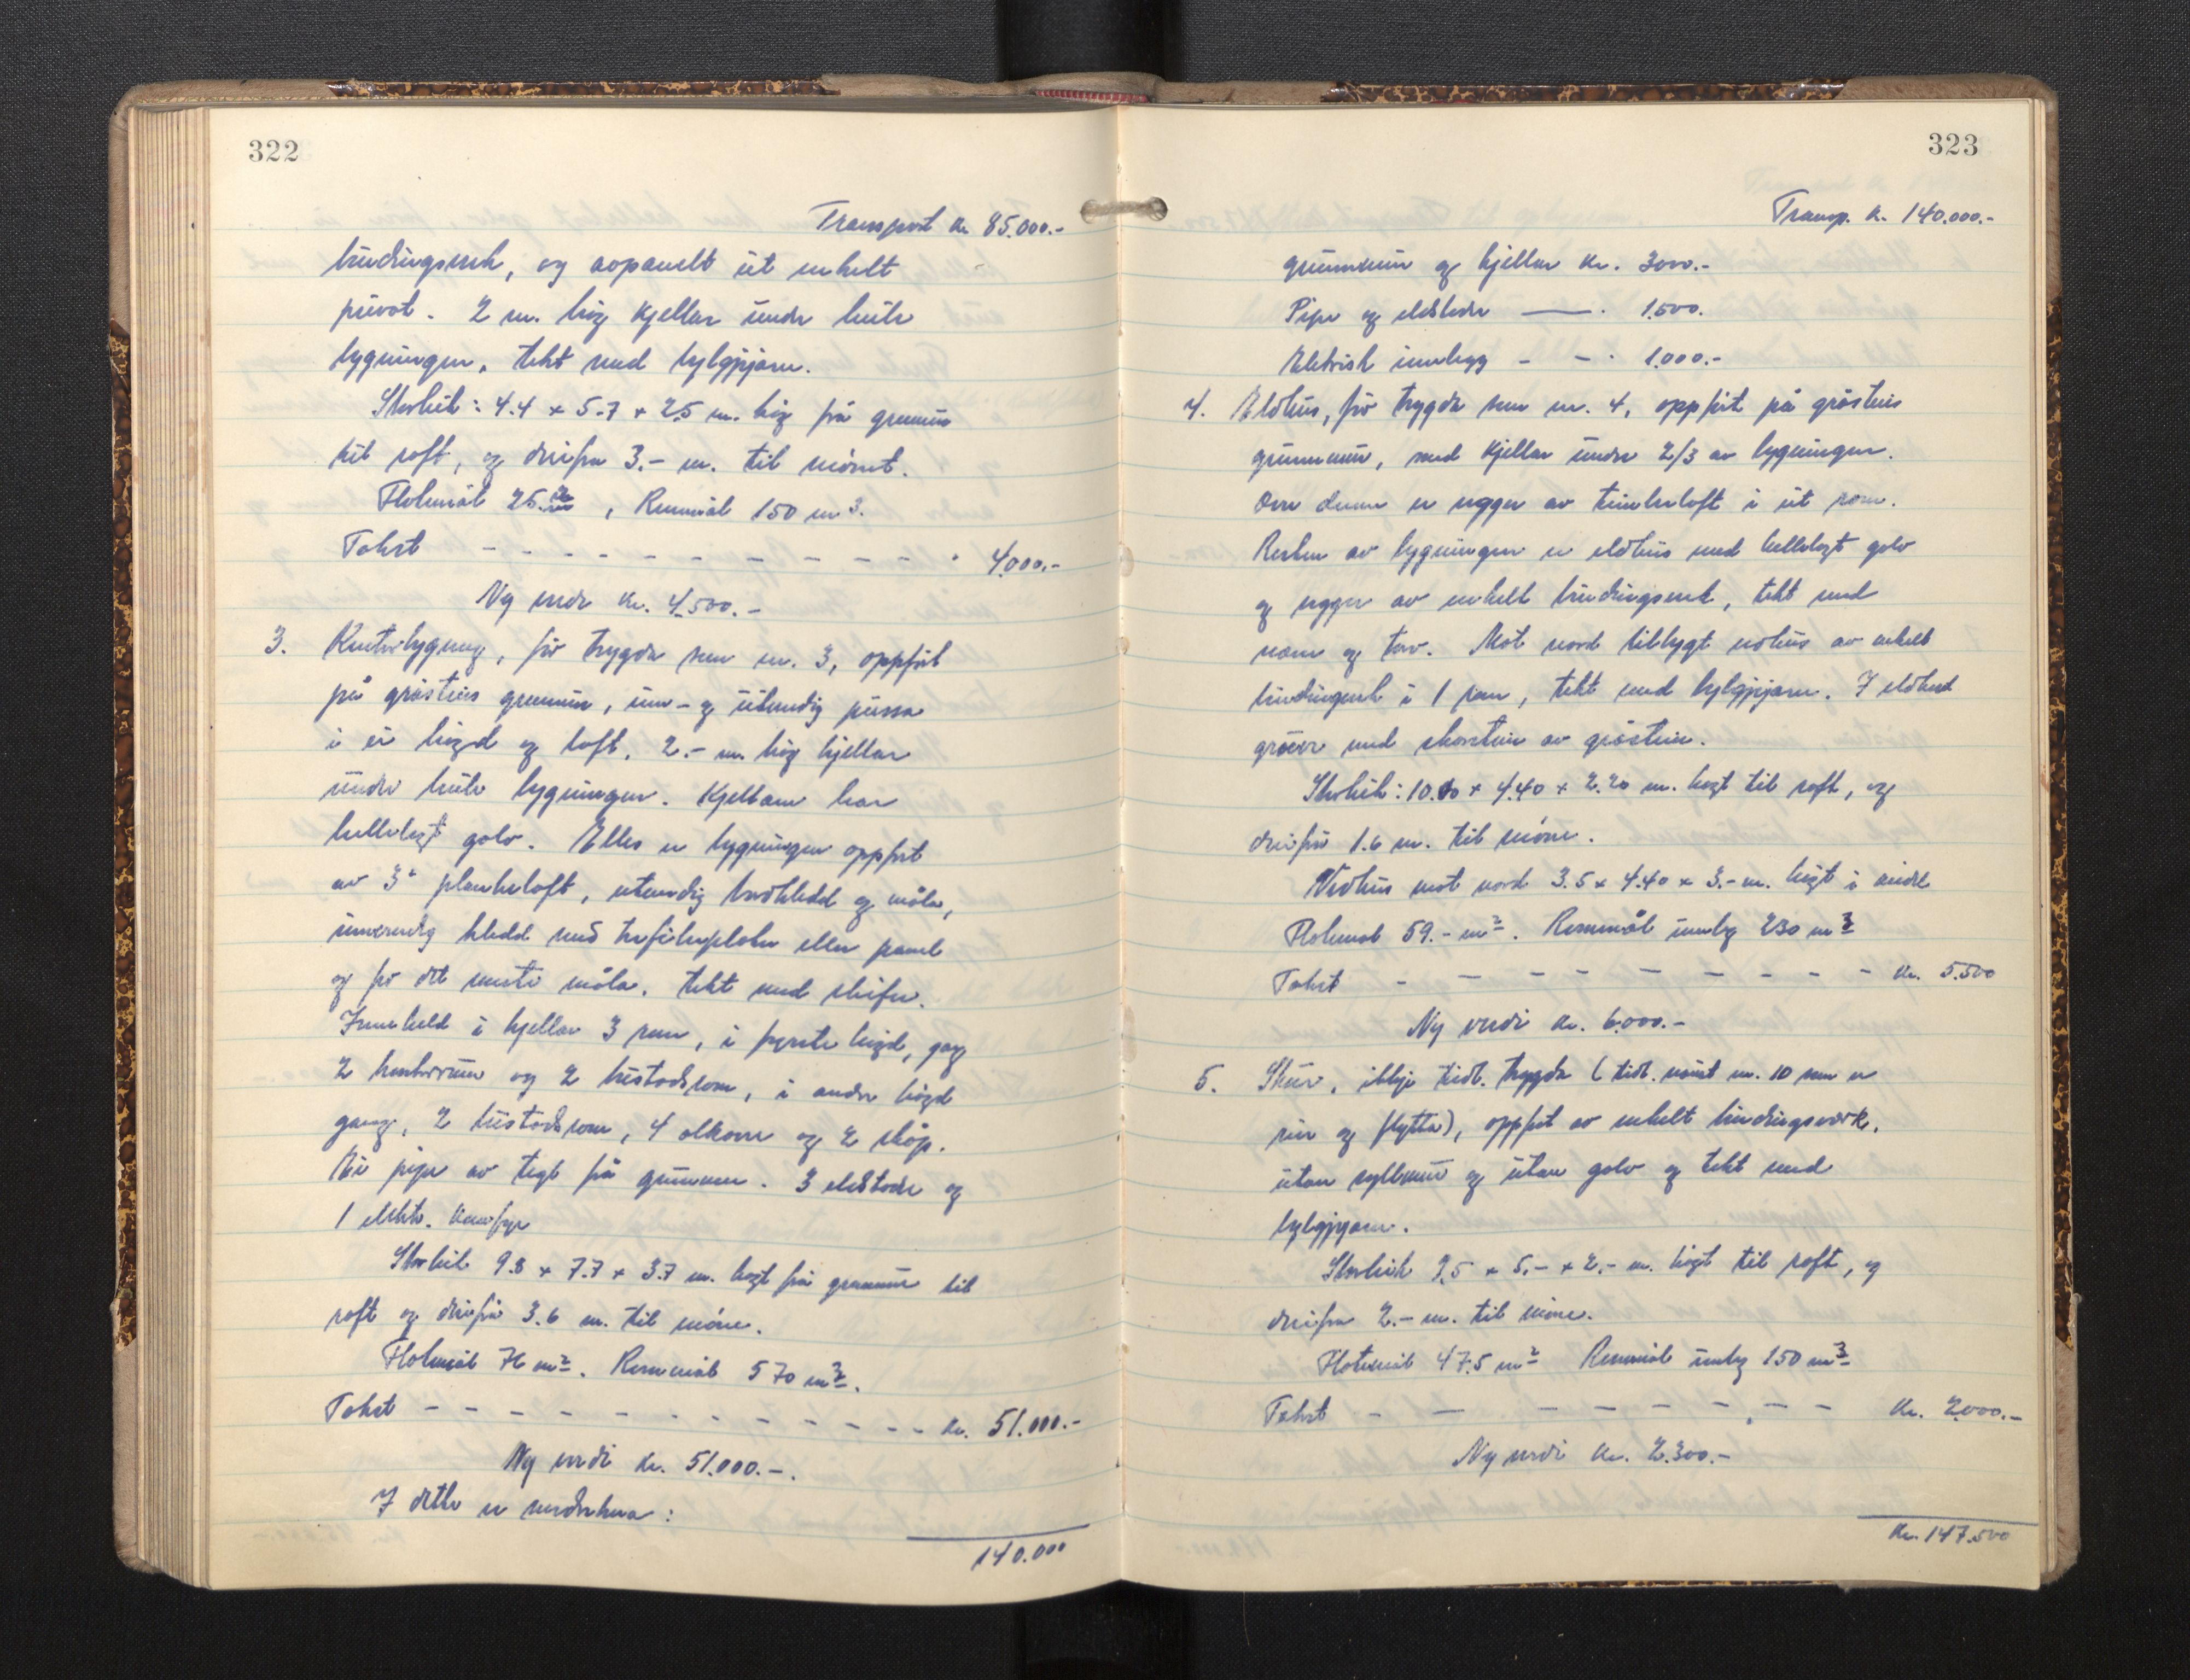 322
Transport kr. 85.000.-
bindingsverk, og aopanelt ut enkelt
2 m. høg kjellar under heile
bygningen, tekt med bylgjejarn.
Storleik: 4.4 x 5.7 x 2.5 m. høg frå grunnmur
til roft, og derifra 3.- m. til mønet.
Flatemål 25. m², Rummål 150 m³.
Takst - - - - - - - - - - - 4.000.-
Ny verdi kr. 4.500.-
3. Kontorbygning, før trygda som nr. 3, oppført
på gråsteins grunnmur, inn- og utvendig pussa
i ei høgd og loft. 2.- m. høg kjellar
under heile bygningen. Kjellaren har
hellelagt golv. Elles er bygningen oppført
av 3" plankeloft, utvendig bordkledd og måla,
innvendig kledd med trefiberplater eller panel
og for det meste måla. Tekt med skifer.
Inneheld i kjellar 3 rom, i første høgd, gang
2 kontorrum og 2 bustadrom, i andre høgd
gang, 2 bustadrom, 4 alkover og 2 skåp.
Ei pipe av tegl frå grunnen. 3 eldstader og
1 elektr. komfyr
Storleik 9.8 x 7.7 x 3.7 m. høgt frå grunnmur til
roft og derifrå 3.6 m. til møne.
Flatemål 76 m². Rummål 570 m³.
Takst - - - - - - - - - - - - kr. 51.000.-
Ny verdi kr. 51.000.-.
I dette er medrekna:
140.000
323
Transp. kr. 140.000.-
grunnmur og kjellar kr. 3000.-
Pipe og eldstader — . 1.500.
Elektrisk innlegg - - . 1.000.-
4. Eldhus, før trygda som nr. 4, oppført på gråsteins
grunnmur, med kjellar under 2/3 av bygningen.
Over denne er vegger av timberloft i eit rom.
Resten av bygningen er eldhus med hellelagt golv
og vegger av enkelt bindingsverk, tekt med
næver og torv. Mot nord tilbygt vedhus av enkelt
bindingsverk i 1 rom, tekt med bylgjejarn. I eldhuset
grøver med skorstein av gråstein.
Storleik: 10.00 x 4.40 x 2.20 m. høgt til roft, og
derifrå 1.6 m. til møne.
Vedhus mot nord 3.5 x 4.40 x 3.- m. høgt i midde
Flatemål 59.- m². Rummål innlag 230 m³
Takst - - - - - - - - - kr. 5.500
Ny verdi kr. 6.000.-
5. Skur, ikkje tidl. trygda (tidl. naust nr. 10 som er
rive og flytta), oppført av enkelt bindingsverk,
utan syllmur og utan golv og tekt med
bylgjejarn.
Storleik 9.5 x 5.- x 2.- m. høgt til roft, og
derifra 2.- m. til møne.
Flatemål 47.5 m² Rummål innlag 150 m³
Takst - - - - - - - - - kr. 2000.-
Ny verdi kr. 2.300.-
Kr. 147.500